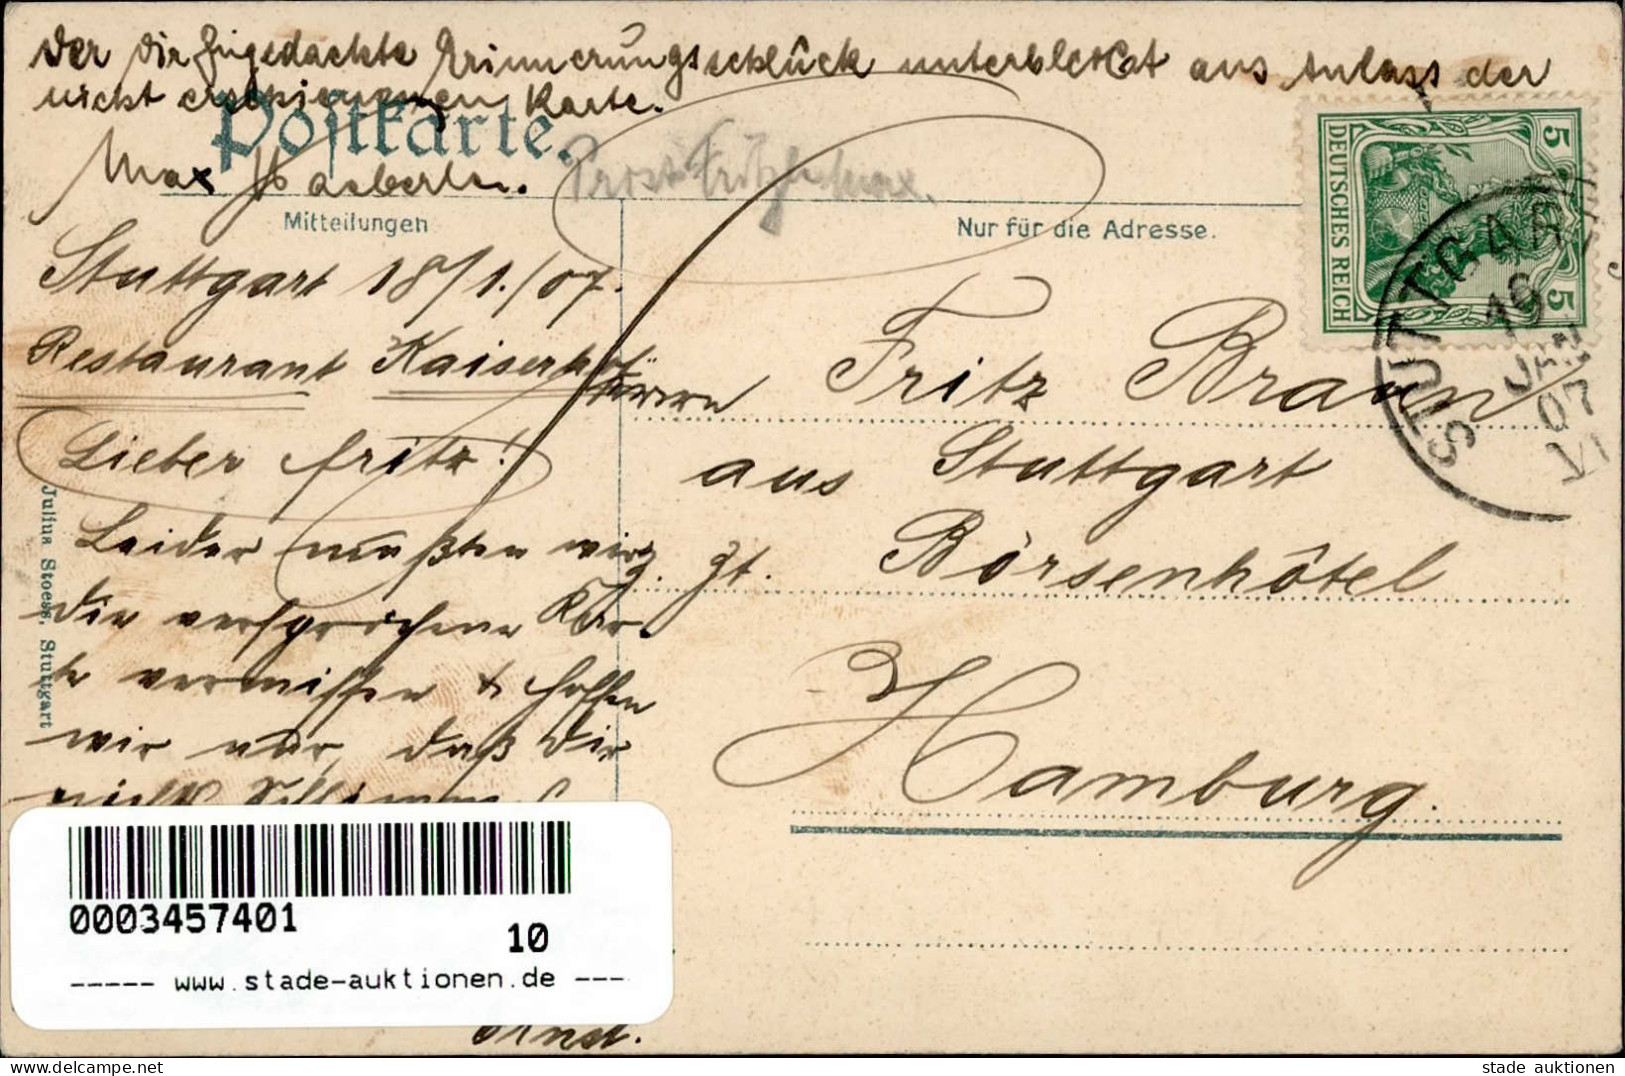 Der Dir zugedachte Erinnerungsschlück unterbleibt aus Anlass der
nicht erschienenen Karte.
Postkarte.
Max Haeberlen.
Prost
Mitteilungen
Nur für die Adresse.
DEUTSCHES REICH
5
5
STUTTGART
19
JAN
07
VI
Stuttgart 18/1./07.
Restaurant Kaiserhof
Lieber Fritz!
Leider mußten wir
die versprochene Kar-
te vermissen & hoffen
wir nur, daß Dir
nicht
Ernst.
Herrn Fritz Braun
aus Stuttgart
z. Zt. Börsenhôtel
Hamburg.
Julius Stoess, Stuttgart
0003457401
10
----- www.stade-auktionen.de ---
stade auktionen